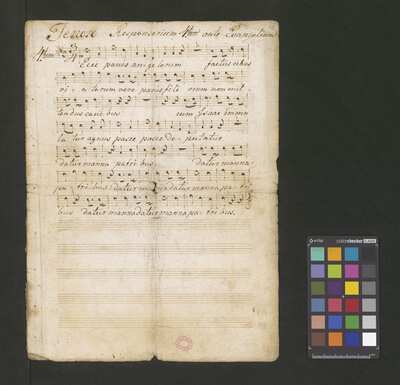 Tenore Responsorium 4tum ante Evangelium
Ecce panis angelorum factus cibus
vi a torum vere panis fili orum non mit
tendus cani bus cum Isaac immo
la tur agnus pasce pasce de putatur
datur manna patri bus datur manna
pa tri bus datur manna datur manna pa tri
bus datur manna datur manna pa tri bus.